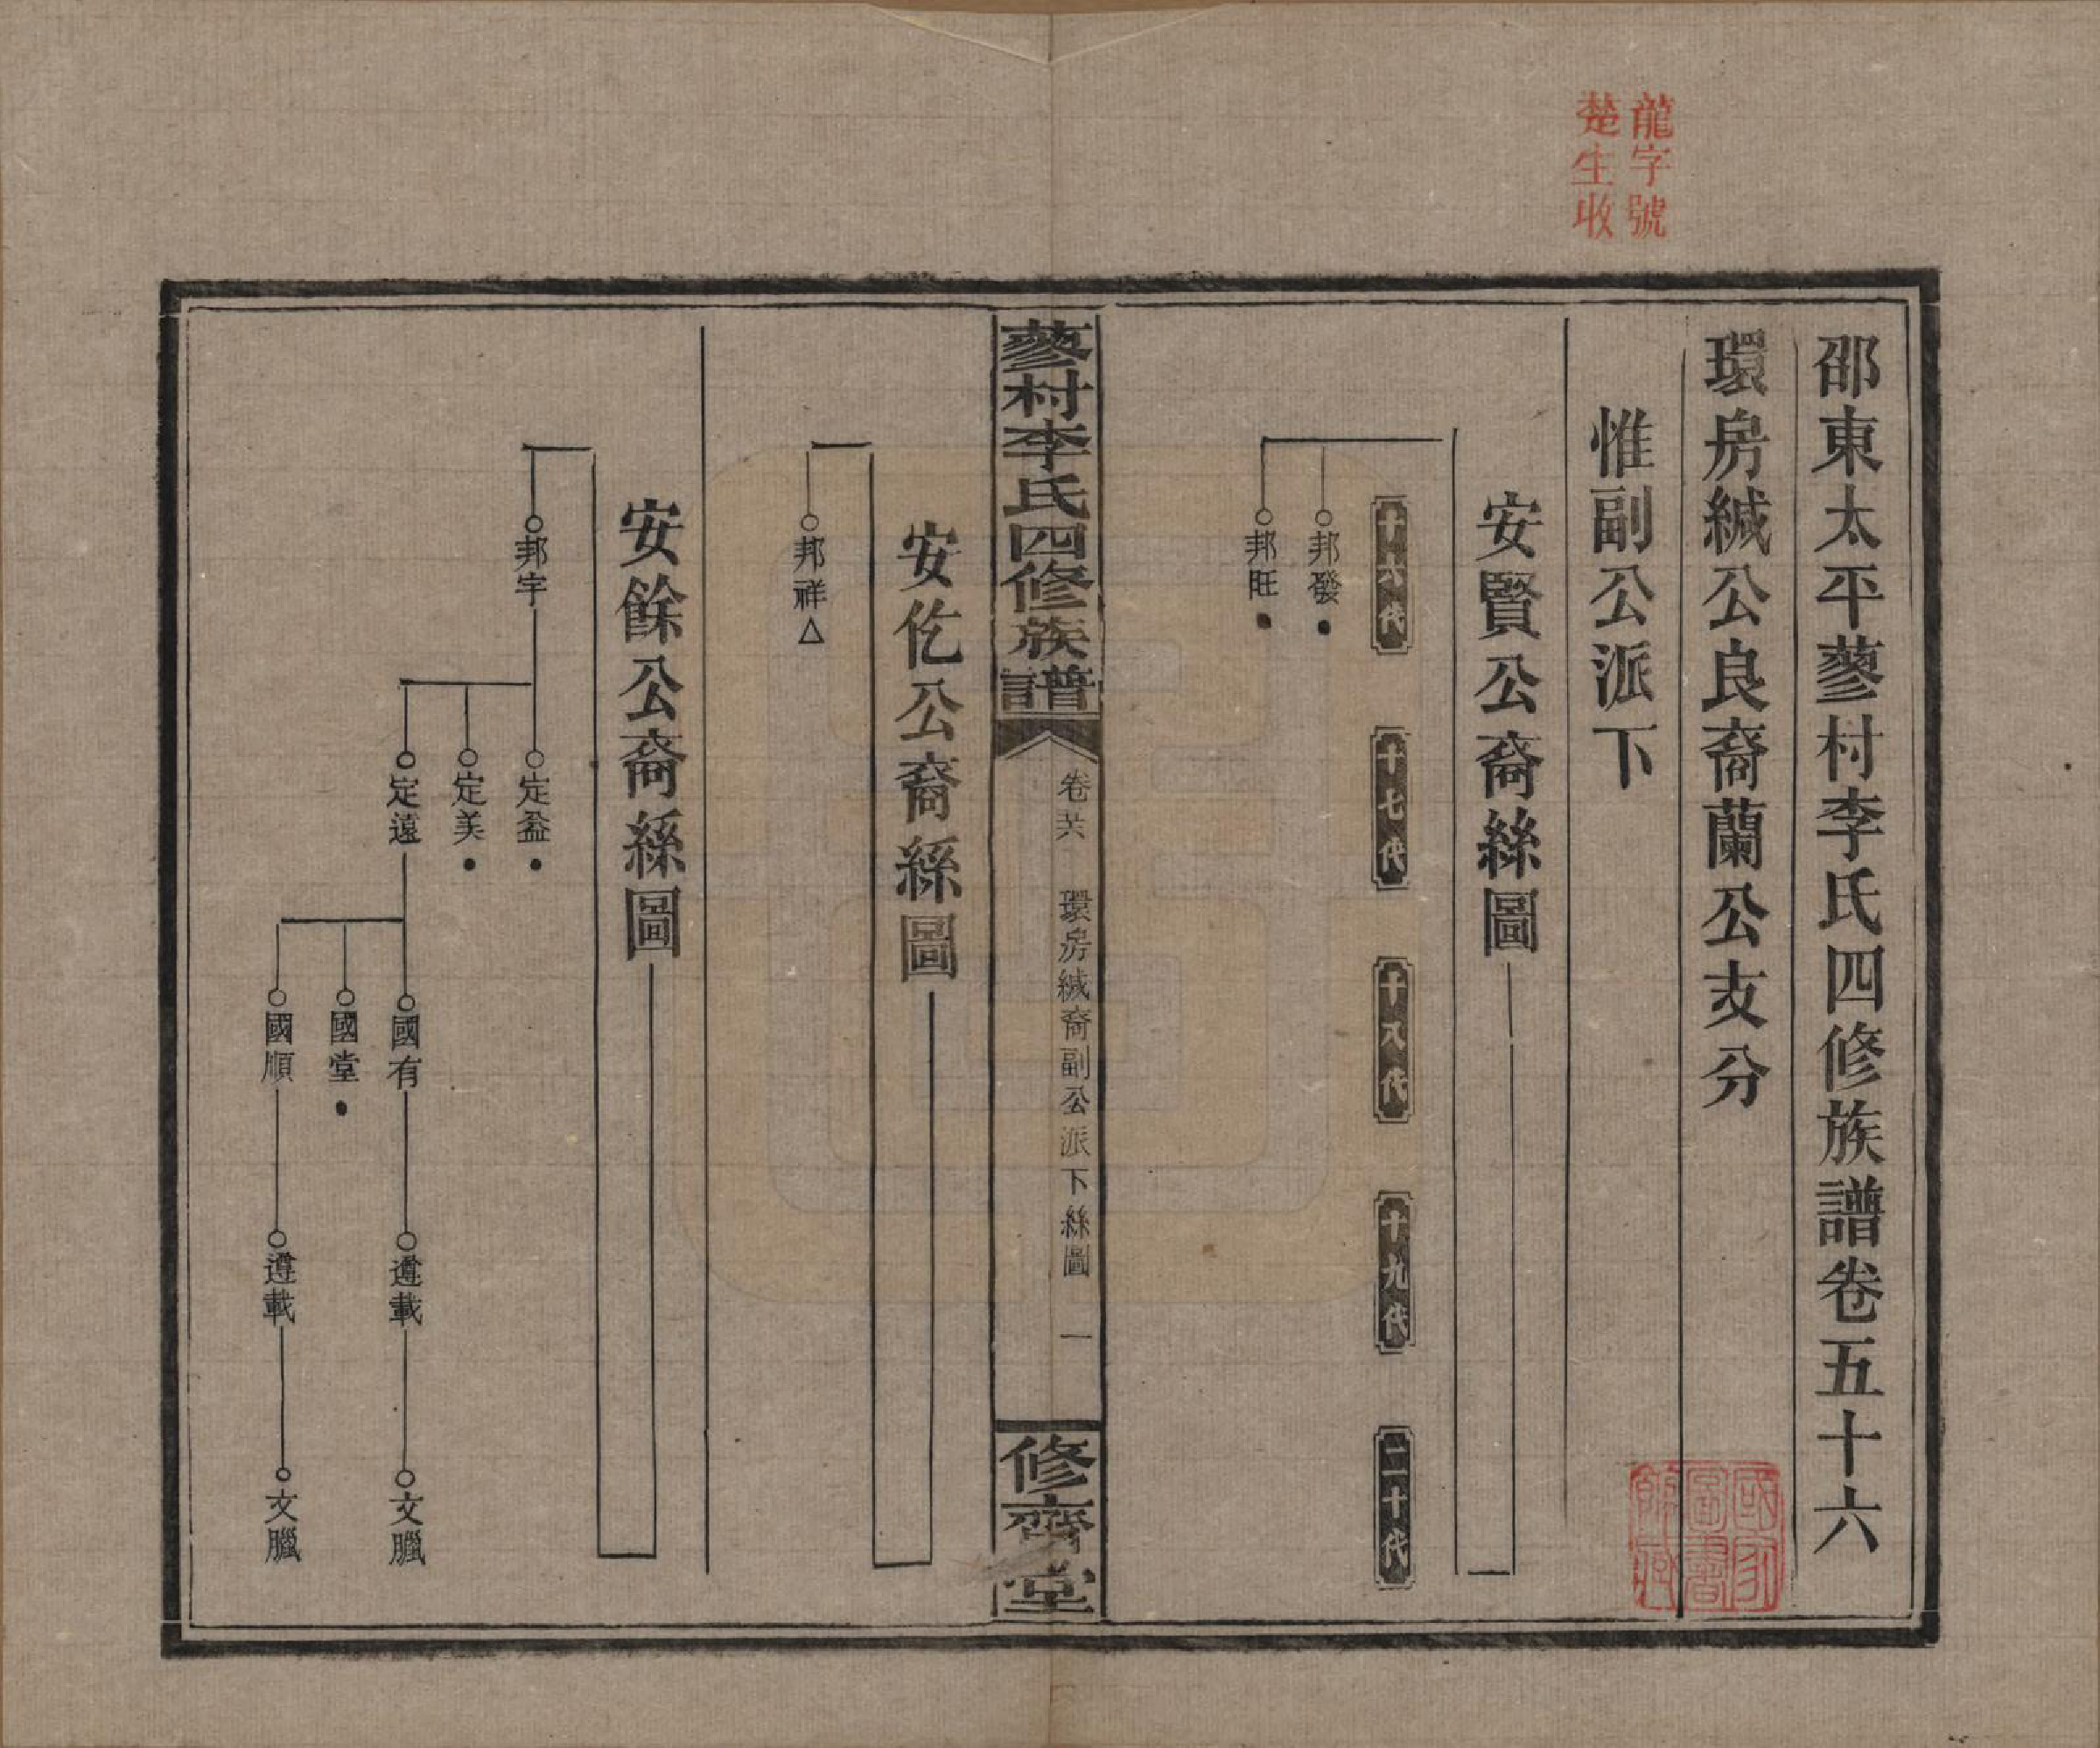 龍字號
楚生收
邵東太平蓼村李氏四修族譜卷五十六
環房緘公良裔蘭公支分
惟副公派下
安賢公裔系圖
十六代
十七代
十八代
十九代
二十代
邦發
邦旺
蓼村李氏四修族譜
卷五六
環房緘裔副公派下系圖
一
修齊堂
安仡公裔系圖
邦祥
安餘公裔系圖
邦宇
定益
定美
定遠
國有
國堂
國順
遵載
遵載
文臘
文臘
國家圖書館藏